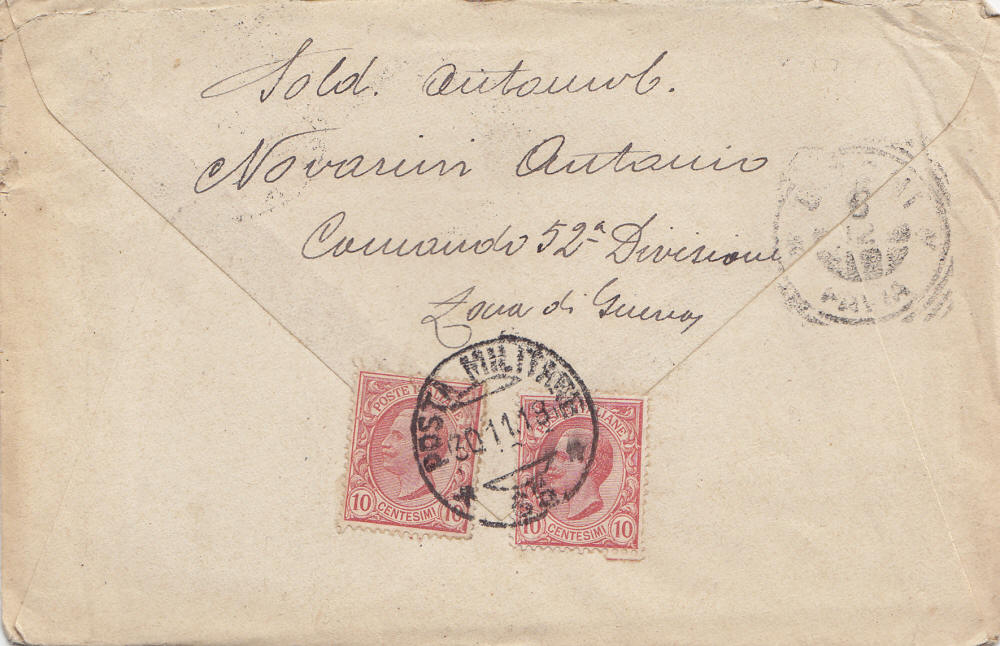 Sold. Automob.
Novarini Antonio
Comando 52ª Divisione
Zona di Guerra
POSTA MILITARE
30.11.18
POSTE ITALIANE
10 CENTESIMI 10
POSTE ITALIANE
10 CENTESIMI 10
8
12